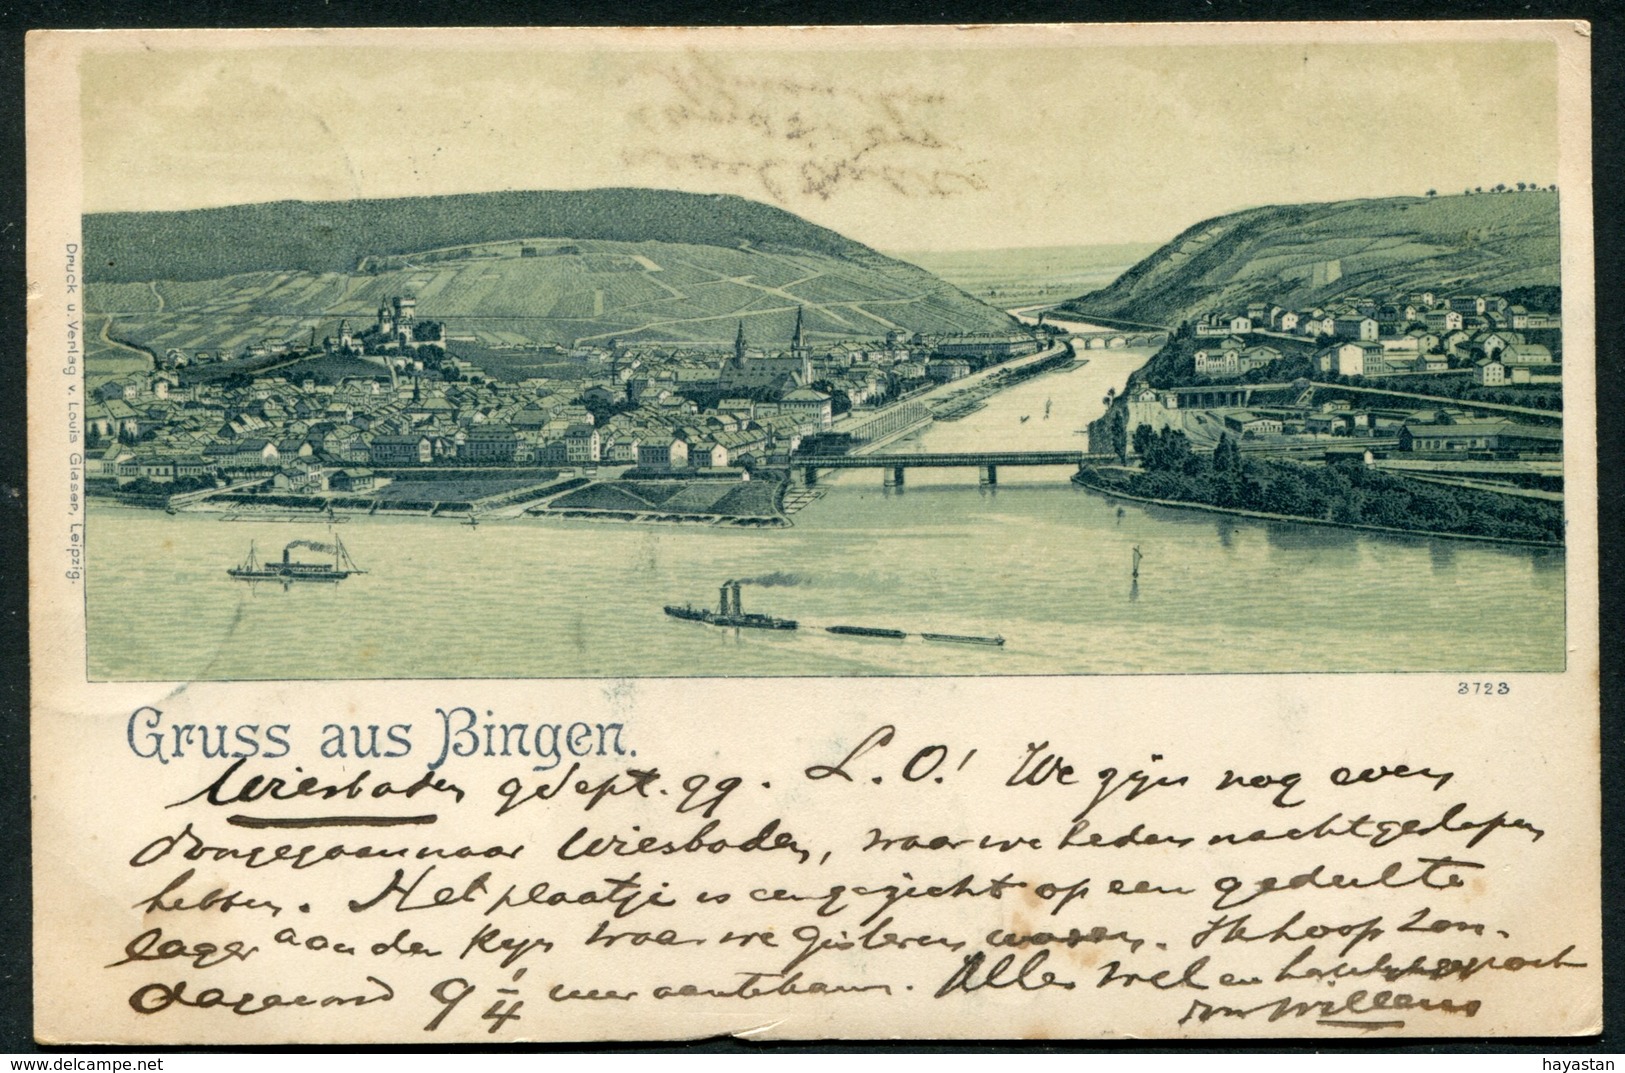 Druck u. Verlag v. Louis Glaser, Leipzig.
3723
Gruss aus Bingen.
Wiesbaden 9 Sept. 99. L. O.! We zijn nog even
doorgegaan naar Wiesbaden, waar we heden nacht geslapen
hebben. Het plaatje is een gezicht op een gedeelte
lager aan den Rijn waar we gisteren waren. Ik hoop Zon-
dagavond 9 1/4 uur aantekomen. Alles wel en
Willem
delcampe.net
hayastan